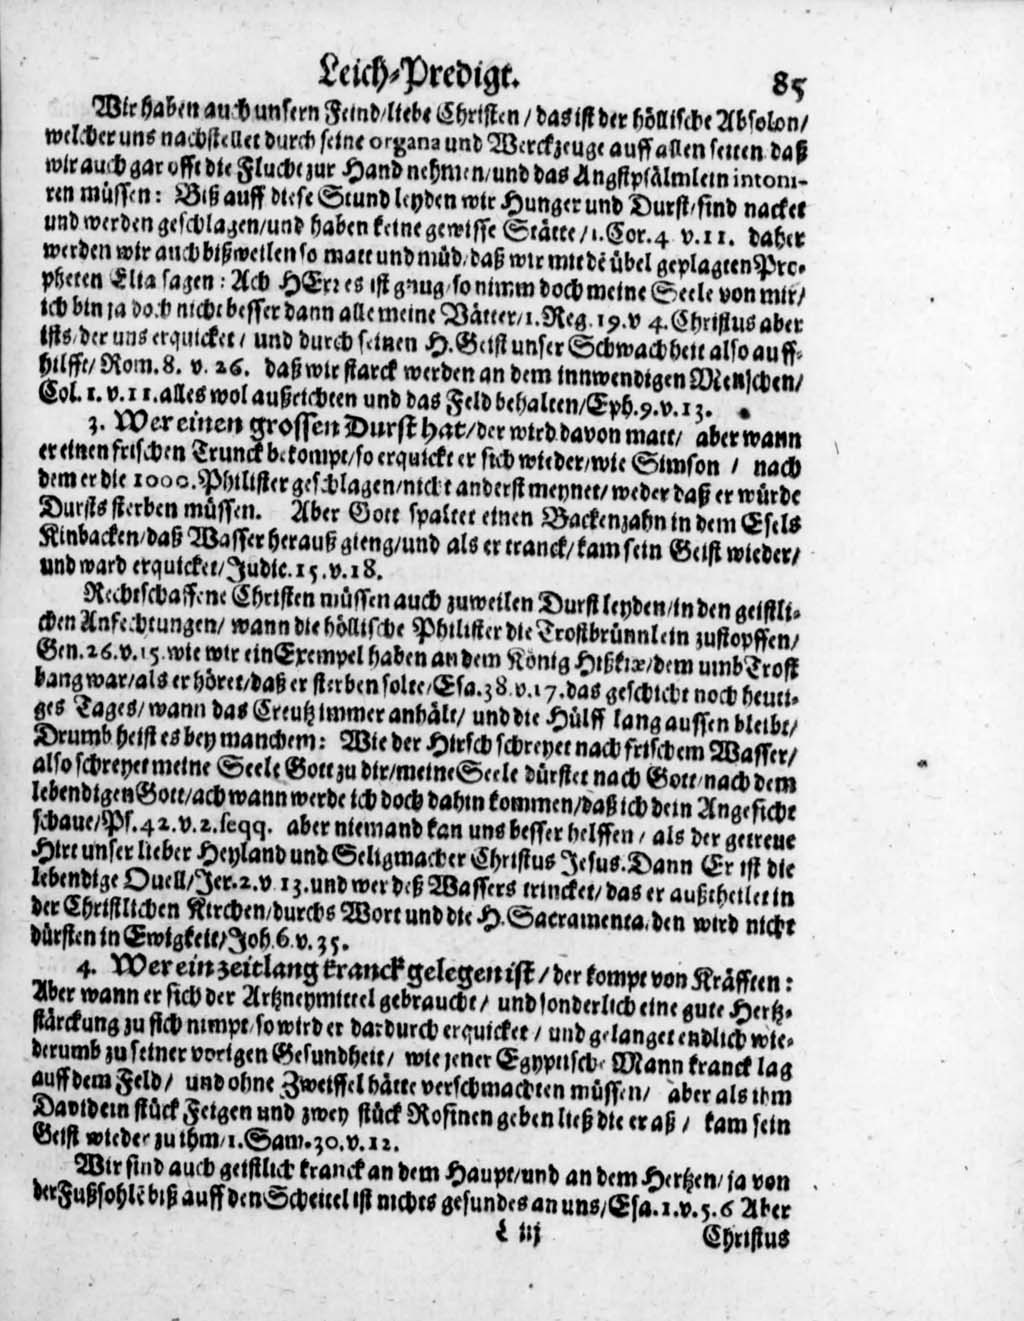 Leich-Predigt. 85
Wir haben auch unsern Feind/liebe Christen / das ist der höllische Absolon/
welcher uns nachstellet durch seine organa und Werckzeuge auff allen seiten daß
wir auch gar offt die Flucht zur Hand nehmen/und das Angstpsälmlein intoni-
ren müssen: Biß auff diese Stund leyden wir Hunger und Durst/sind nacket
und werden geschlagen/und haben keine gewisse Stätte /1.Cor.4 v.11. daher
werden wir auch bißweilen so matt und müd/daß wir mit dē übel geplagten Pro-
pheten Elia sagen: Ach HErr es ist gnug/so nimm doch meine Seele von mir/
ich bin ja doch nicht besser dann alle meine Vätter/1.Reg.19.v 4.Christus aber
ists/der uns erquicket / und durch seinen H.Geist unser Schwachheit also auff-
hilfft/Rom.8. v. 26. daß wir starck werden an dem innwendigen Menschen/
Col. 1. v.11.alles wol außrichten und das Feld behalten/Eph.9.v.13.
3. Wer einen grossen Durst hat/der wird davon matt/ aber wann
er einen frischen Trunck bekompt/so erquickt er sich wieder/wie Simson / nach
dem er die 1000.Philister geschlagen/nicht anderst meynet/weder daß er würde
Dursts sterben müssen. Aber Gott spaltet einen Backenzahn in dem Esels
Kinbacken/daß Wasser herauß gieng/und als er tranck/kam sein Geist wieder/
und ward erquicket/Judic.15.v.18.
Rechtschaffene Christen müssen auch zuweilen Durst leyden/in den geistli-
chen Anfechtungen/ wann die höllische Philister die Trostbrünnlein zustopffen/
Gen.26.v.15.wie wir ein Exempel haben an dem König Hißkiæ/dem umb Trost
bang war/als er höret/daß er sterben solte/Esa.38.v.17.das geschicht noch heuti-
ges Tages/wann das Creutz immer anhält/ und die Hülff lang aussen bleibt/
Drumb heist es bey manchem: Wie der Hirsch schreyet nach frischem Wasser/
also schreyet meine Seele Gott zu dir/meine Seele dürstet nach Gott/nach dem
lebendigen Gott/ach wann werde ich doch dahin kommen/daß ich dein Angesicht
schaue/Ps.42.v.2.seqq. aber niemand kan uns besser helffen / als der getreue
Hirt unser lieber Heyland und Seligmacher Christus Jesus.Dann Er ist die
lebendige Quell/Jer.2.v 13.und wer deß Wassers trincket/das er außtheilet in
der Christlichen Kirchen/durchs Wort und die H.Sacramenta/den wird nicht
dürsten in Ewigkeit/Joh.6.v.35.
4. Wer ein zeitlang kranck gelegen ist/der kompt von Kräfften:
Aber wann er sich der Artzneymittel gebraucht/ und sonderlich eine gute Hertz-
stärckung zu sich nimpt/so wird er dardurch erquicket / und gelanget endlich wie-
derumb zu seiner vorigen Gesundheit/ wie jener Egyptische Mann kranck lag
auff dem Feld/ und ohne Zweiffel hätte verschmachten müssen/ aber als ihm
David ein stück Feigen und zwey stück Rosinen geben ließ die er aß / kam sein
Geist wieder zu ihm/1.Sam.30.v.12.
Wir sind auch geistlich kranck an dem Haupt/und an dem Hertzen/ja von
der Fußsohlē biß auff den Scheitel ist nichts gesundes an uns/Esa.1.v.5.6 Aber
L iij Christus